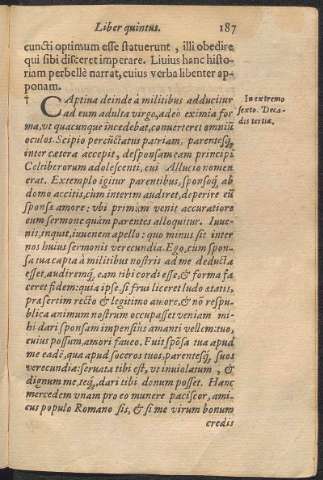 Liber quintus. 187
cuncti optimum esse statuerunt, illi obedire,
qui sibi disceret imperare. Liuius hanc histo-
riam perbellè narrat, cuius verba libenter ap-
ponam.
Captiua deinde à militibus adducitur
ad eum adulta virgo, adeò eximia for
ma, vt quacunque incedebat, conuerteret omniũ
oculos. Scipio percũctatus patriam, parentesq́;
inter cætera accepit, desponsam eam principi
Celtiberorum adolescenti, cui Allucio nomen
erat. Extemplo igitur parentibus, sponsoq́; ab
domo accitis, cùm interim audiret, deperire eũ
sponsæ amore: vbi primùm venit accuratiore
eum sermone quàm parentes alloquitur. Iuue-
nis, inquit, iuuenem apello: quo minus sit inter
nos huius sermonis verecundia. Ego, cùm spon-
sa tua capta à militibus nostris ad me deducta
esset, audiremq́; eam tibi cordi esse, & forma fa
ceret fidem: quia ipse, si frui liceret ludo ætatis,
præsertim recto & legitimo amore, & nõ resp-
ublica animum nostrum occupasset veniam mi-
hi dari sponsam impensiùs amanti vellem: tuo,
cuius possum, amori faueo. Fuit spõsa tua apud
me eadẽ, qua apud soceros tuos, parentesq́; suos
verecundia: seruata tibi est, vt inuiolatum, &
dignum me, teq́; dari tibi donum posset. Hanc
mercedem vnam pro eo munere paciscor, ami-
cus populo Romano sis, & si me virum bonum
credis
In extremo
sexto. Deca-
dis tertiæ.